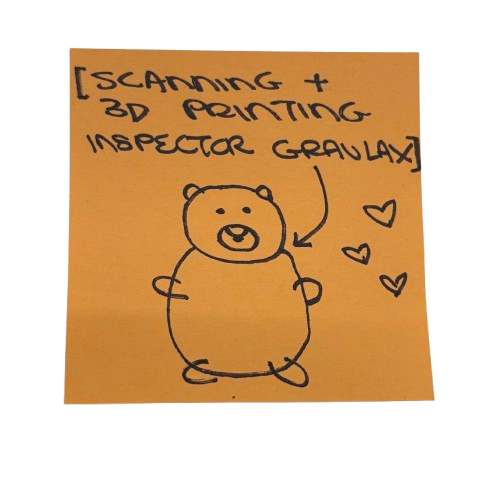 [SCANNING +
3D PRINTING
INSPECTOR GRAVLAX]